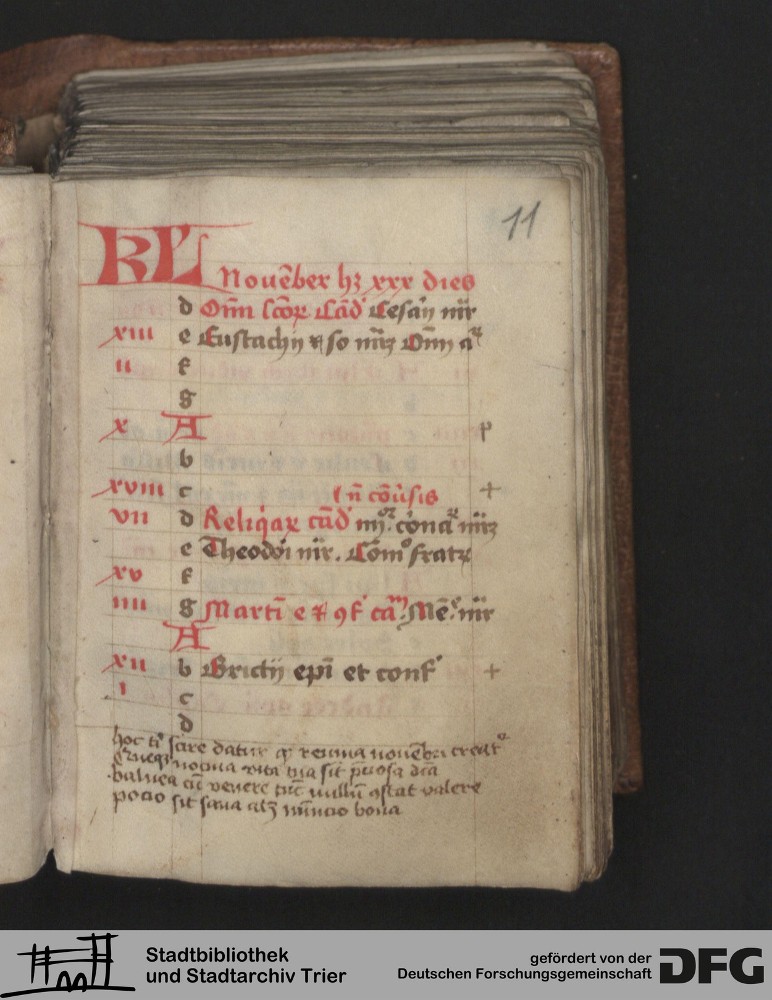 11
KL Nouēber hȝ xxx dies
d Om̄ scōꝝ Cād Cesarij mr̄
xiii e Eustachij ⁊ so mr̄ȝ Om̄ a
ii f
g
x A p
b
xviii c +
n̄ cōūsis
vii d Reliq̄aꝝ cād iiii cōna mr̄ȝ
e Theodoi mr̄. Com̄ fratꝝ
xv f
iiii g Martī e ⁊ ꝯf cā. Mē mr̄
A
xii b Brictij epī et conf +
i c
d
hoc tī scire datur ꝙ reuma nouēbri creat
Queqȝ nociua vita tua sit p̄ciosa dīa
balnea cū venere tūc nullū ꝯstat valere
pocio sit sana atqȝ mīucio bona
Stadtbibliothek
und Stadtarchiv Trier
gefördert von der
Deutschen Forschungsgemeinschaft
DFG